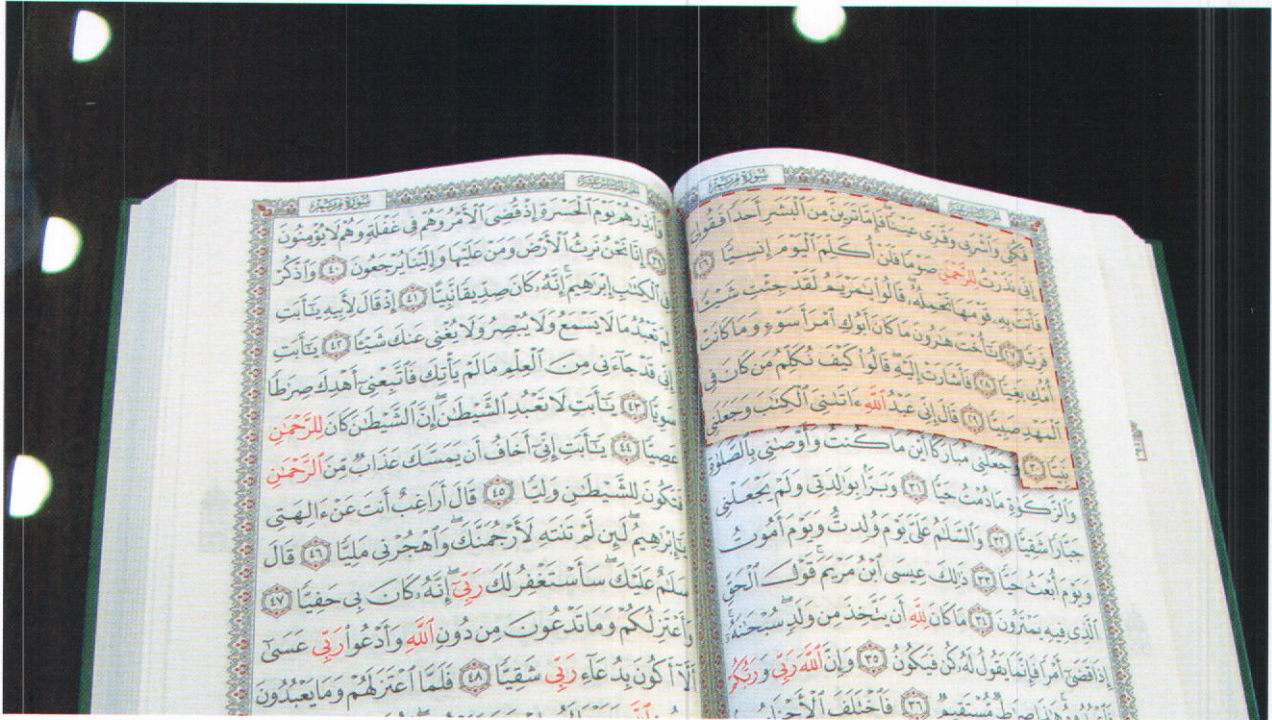 الجزء السادس عشر سُورَةُ مَرْيَمَ
فَكُلِى وَٱشْرَبِى وَقَرِّى عَيْنًا فَإِمَّا تَرَيِنَّ مِنَ ٱلْبَشَرِ أَحَدًا فَقُولِىٓ
إِنِّى نَذَرْتُ لِلرَّحْمَٰنِ صَوْمًا فَلَنْ أُكَلِّمَ ٱلْيَوْمَ إِنسِيًّا ٢٦
فَأَتَتْ بِهِۦ قَوْمَهَا تَحْمِلُهُۥ قَالُوا۟ يَٰمَرْيَمُ لَقَدْ جِئْتِ شَيْـًٔا
فَرِيًّا ٢٧ يَٰٓأُخْتَ هَٰرُونَ مَا كَانَ أَبُوكِ ٱمْرَأَ سَوْءٍ وَمَا كَانَتْ
أُمُّكِ بَغِيًّا ٢٨ فَأَشَارَتْ إِلَيْهِ قَالُوا۟ كَيْفَ نُكَلِّمُ مَن كَانَ فِى
ٱلْمَهْدِ صَبِيًّا ٢٩ قَالَ إِنِّى عَبْدُ ٱللَّهِ ءَاتَىٰنِىَ ٱلْكِتَٰبَ وَجَعَلَنِى
نَبِيًّا ٣٠ وَجَعَلَنِى مُبَارَكًا أَيْنَ مَا كُنتُ وَأَوْصَٰنِى بِٱلصَّلَوٰةِ
وَٱلزَّكَوٰةِ مَا دُمْتُ حَيًّا ٣١ وَبَرًّۢا بِوَٰلِدَتِى وَلَمْ يَجْعَلْنِى
جَبَّارًا شَقِيًّا ٣٢ وَٱلسَّلَٰمُ عَلَىَّ يَوْمَ وُلِدتُّ وَيَوْمَ أَمُوتُ
وَيَوْمَ أُبْعَثُ حَيًّا ٣٣ ذَٰلِكَ عِيسَى ٱبْنُ مَرْيَمَ قَوْلَ ٱلْحَقِّ
ٱلَّذِى فِيهِ يَمْتَرُونَ ٣٤ مَا كَانَ لِلَّهِ أَن يَتَّخِذَ مِن وَلَدٍ سُبْحَٰنَهُۥٓ
إِذَا قَضَىٰٓ أَمْرًا فَإِنَّمَا يَقُولُ لَهُۥ كُن فَيَكُونُ ٣٥ وَإِنَّ ٱللَّهَ رَبِّى وَرَبُّكُمْ
فَٱعْبُدُوهُ هَٰذَا صِرَٰطٌ مُّسْتَقِيمٌ ٣٦ فَٱخْتَلَفَ ٱلْأَحْزَابُ
الجزء السادس عشر سُورَةُ مَرْيَمَ
وَأَنذِرْهُمْ يَوْمَ ٱلْحَسْرَةِ إِذْ قُضِىَ ٱلْأَمْرُ وَهُمْ فِى غَفْلَةٍ وَهُمْ لَا يُؤْمِنُونَ
٣٩ إِنَّا نَحْنُ نَرِثُ ٱلْأَرْضَ وَمَنْ عَلَيْهَا وَإِلَيْنَا يُرْجَعُونَ ٤٠ وَٱذْكُرْ
فِى ٱلْكِتَٰبِ إِبْرَٰهِيمَ إِنَّهُۥ كَانَ صِدِّيقًا نَّبِيًّا ٤١ إِذْ قَالَ لِأَبِيهِ يَٰٓأَبَتِ
لِمَ تَعْبُدُ مَا لَا يَسْمَعُ وَلَا يُبْصِرُ وَلَا يُغْنِى عَنكَ شَيْـًٔا ٤٢ يَٰٓأَبَتِ
إِنِّى قَدْ جَآءَنِى مِنَ ٱلْعِلْمِ مَا لَمْ يَأْتِكَ فَٱتَّبِعْنِىٓ أَهْدِكَ صِرَٰطًا
سَوِيًّا ٤٣ يَٰٓأَبَتِ لَا تَعْبُدِ ٱلشَّيْطَٰنَ إِنَّ ٱلشَّيْطَٰنَ كَانَ لِلرَّحْمَٰنِ
عَصِيًّا ٤٤ يَٰٓأَبَتِ إِنِّىٓ أَخَافُ أَن يَمَسَّكَ عَذَابٌ مِّنَ ٱلرَّحْمَٰنِ
فَتَكُونَ لِلشَّيْطَٰنِ وَلِيًّا ٤٥ قَالَ أَرَاغِبٌ أَنتَ عَنْ ءَالِهَتِى
يَٰٓإِبْرَٰهِيمُ لَئِن لَّمْ تَنتَهِ لَأَرْجُمَنَّكَ وَٱهْجُرْنِى مَلِيًّا ٤٦ قَالَ
سَلَٰمٌ عَلَيْكَ سَأَسْتَغْفِرُ لَكَ رَبِّىٓ إِنَّهُۥ كَانَ بِى حَفِيًّا ٤٧
وَأَعْتَزِلُكُمْ وَمَا تَدْعُونَ مِن دُونِ ٱللَّهِ وَأَدْعُوا۟ رَبِّى عَسَىٰٓ
أَلَّآ أَكُونَ بِدُعَآءِ رَبِّى شَقِيًّا ٤٨ فَلَمَّا ٱعْتَزَلَهُمْ وَمَا يَعْبُدُونَ